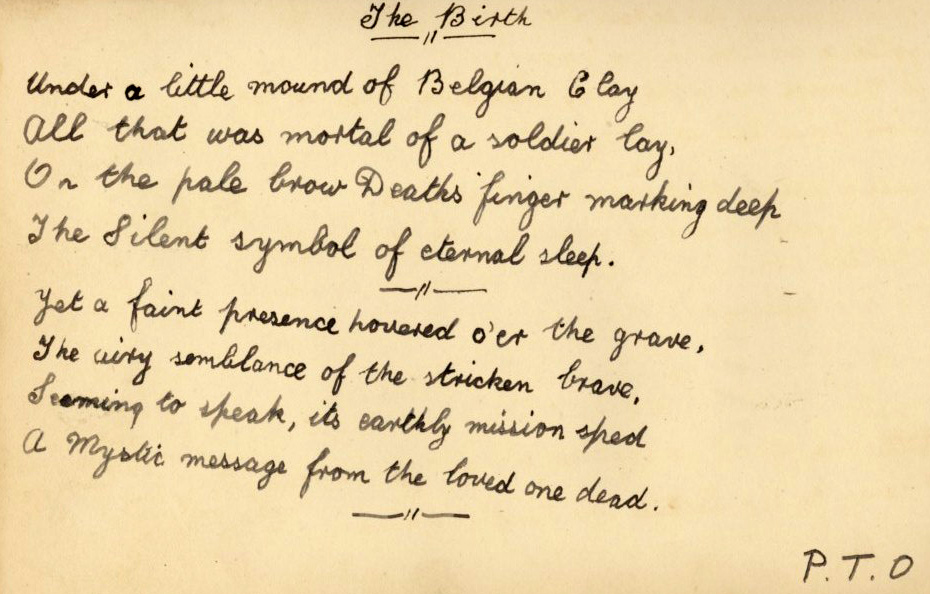 The Birth
Under a little mound of Belgian Clay
All that was mortal of a soldier lay,
On the pale brow Deaths finger marking deep
The Silent symbol of eternal sleep.
Yet a faint presence hovered o'er the grave,
The airy semblance of the stricken brave,
Seeming to speak, its earthly mission sped
A Mystic message from the loved one dead.
P.T.O